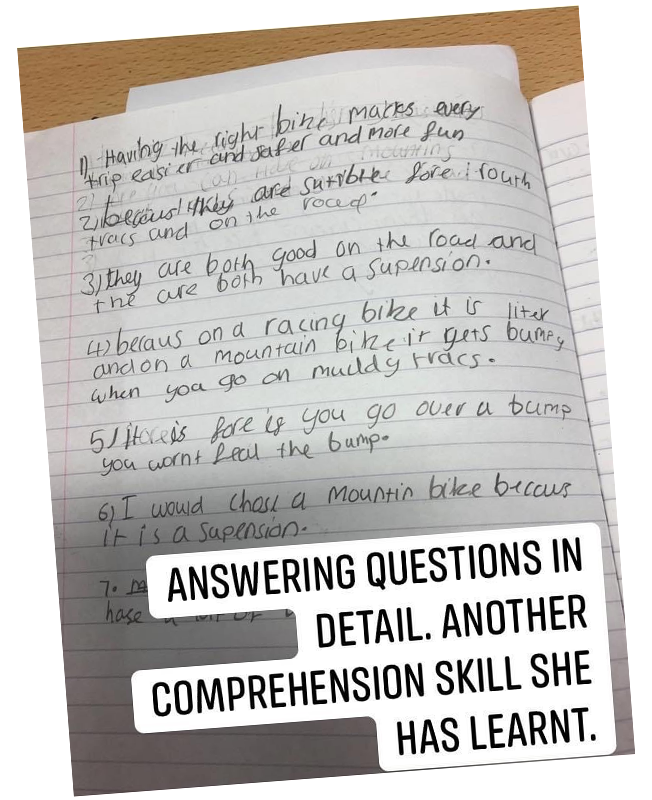 1) Having the right bike marks every
trip easier and safer and more fun
2) becaus they are sutible fore routh
tracs and on the roced.
3) they are both good on the road and
the are both have a supension.
4) becaus on a racing bike it is liter
and on a mountain bike it gets bumpy
when you go on muddy tracs.
5) it is fore if you go over a bump
you wornt feal the bump.
6) I would chose a mountin bike becaus
it is a supension.
7.
hase a
ANSWERING QUESTIONS IN
DETAIL. ANOTHER
COMPREHENSION SKILL SHE
HAS LEARNT.